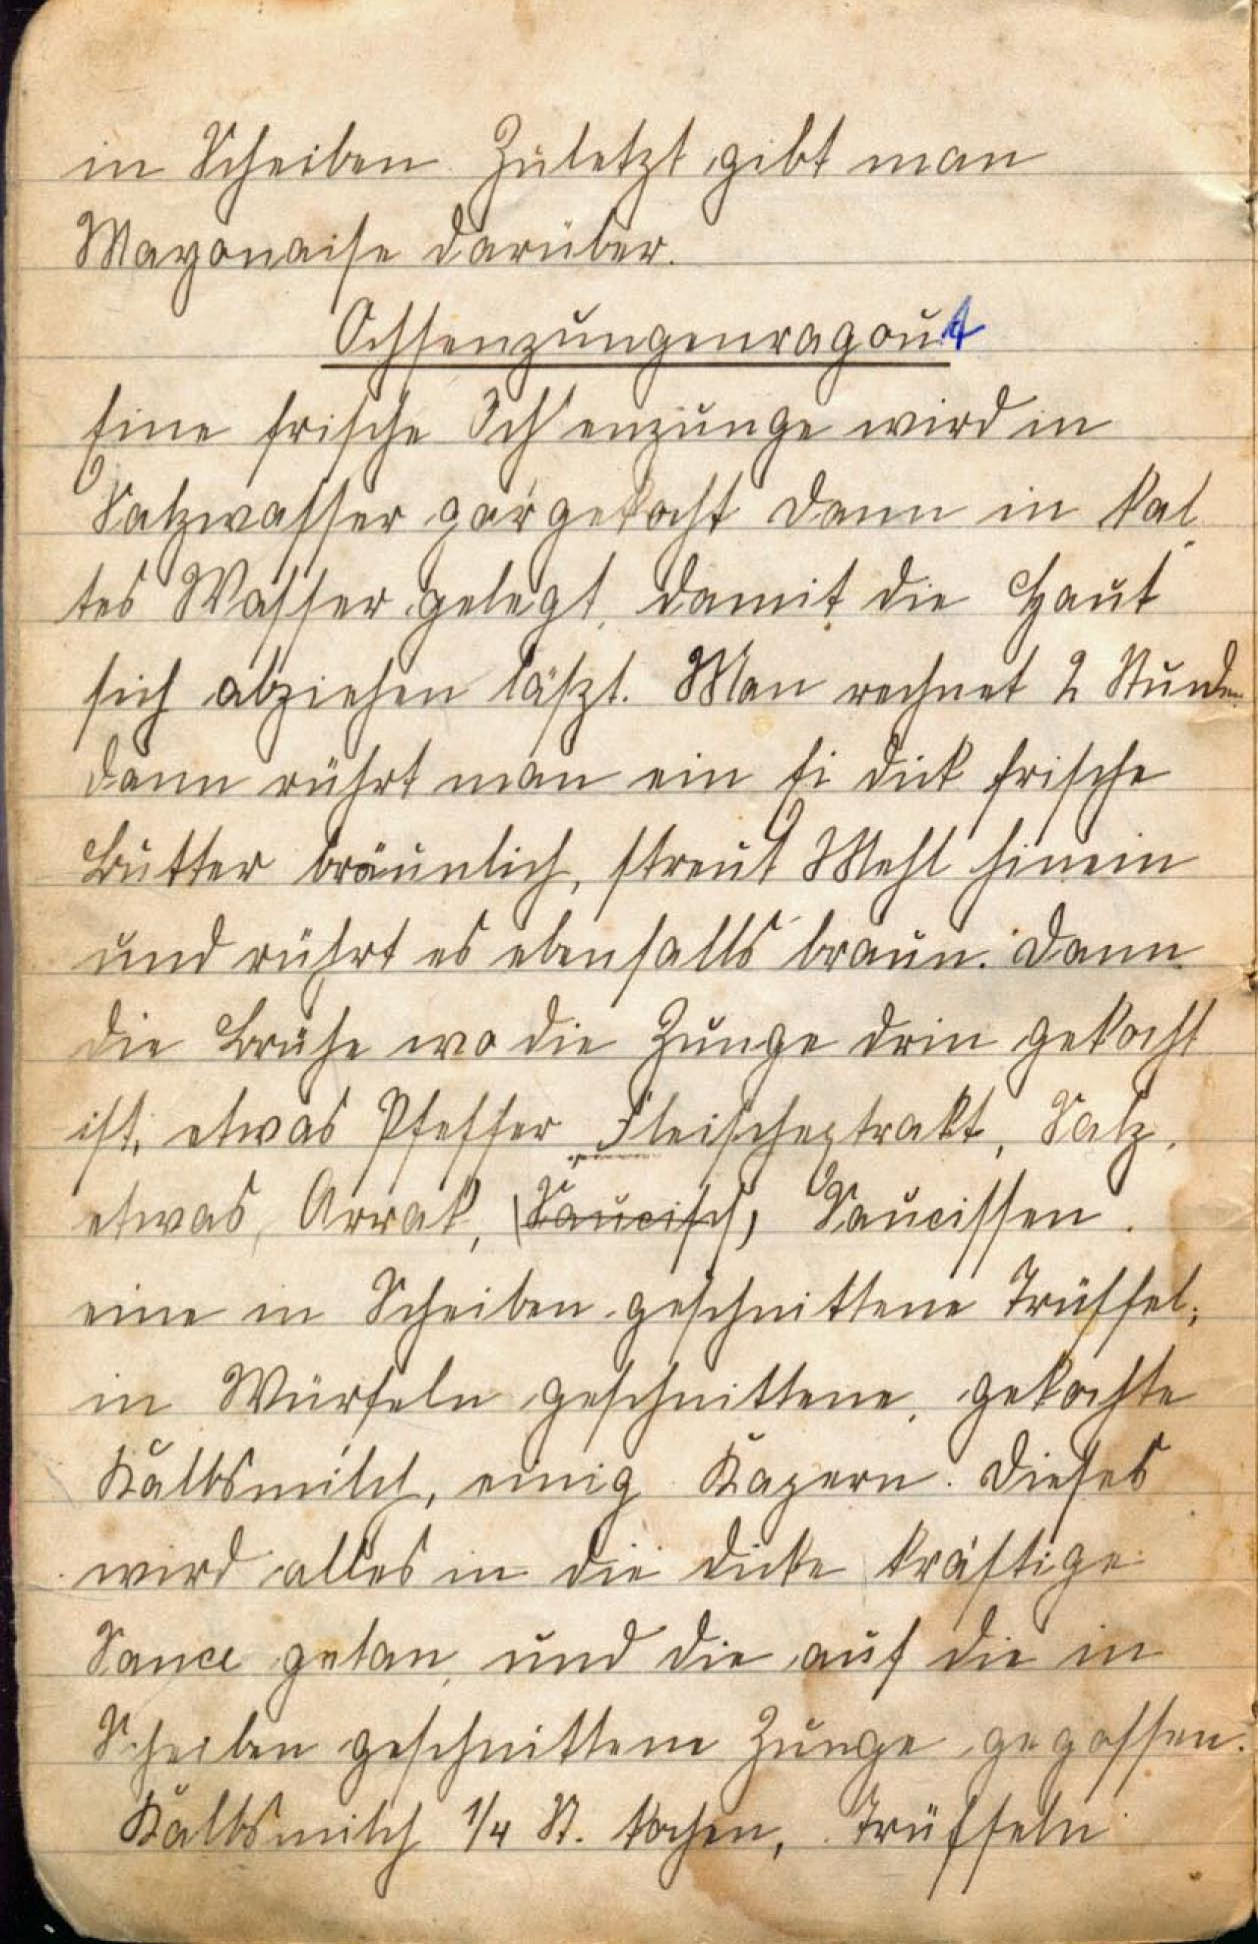 in Scheiben. Zuletzt gibt man
Mayonaise darüber.
Ochsenzungenragout
Eine frische Ochsenzunge wird in
Salzwasser gar gekocht dann in kal
tes Wasser gelegt, damit die Haut
sich abziehen läszt. Man rechnet 2 Stunden
dann rührt man ein Ei dick frische
Butter bräunlich, streut Mehl hinein
und rührt es ebenfalls braun. Dann
die Brühe wo die Zunge drin gekocht
ist, etwas Pfeffer Fleischextrakt, Salz,
etwas Arrak, (Saucisch), Saucissen.
eine in Scheiben geschnittene Trüffel,
in Würfeln geschnittene, gekochte
Kalbsmilch, einig Kapern. Dieses
wird alles in die dicke kräftige
Sauce getan, und die auf die in
Scheiben geschnittene Zunge gegossen.
Kalbsmilch 1/4 St. kochen, Trüffeln